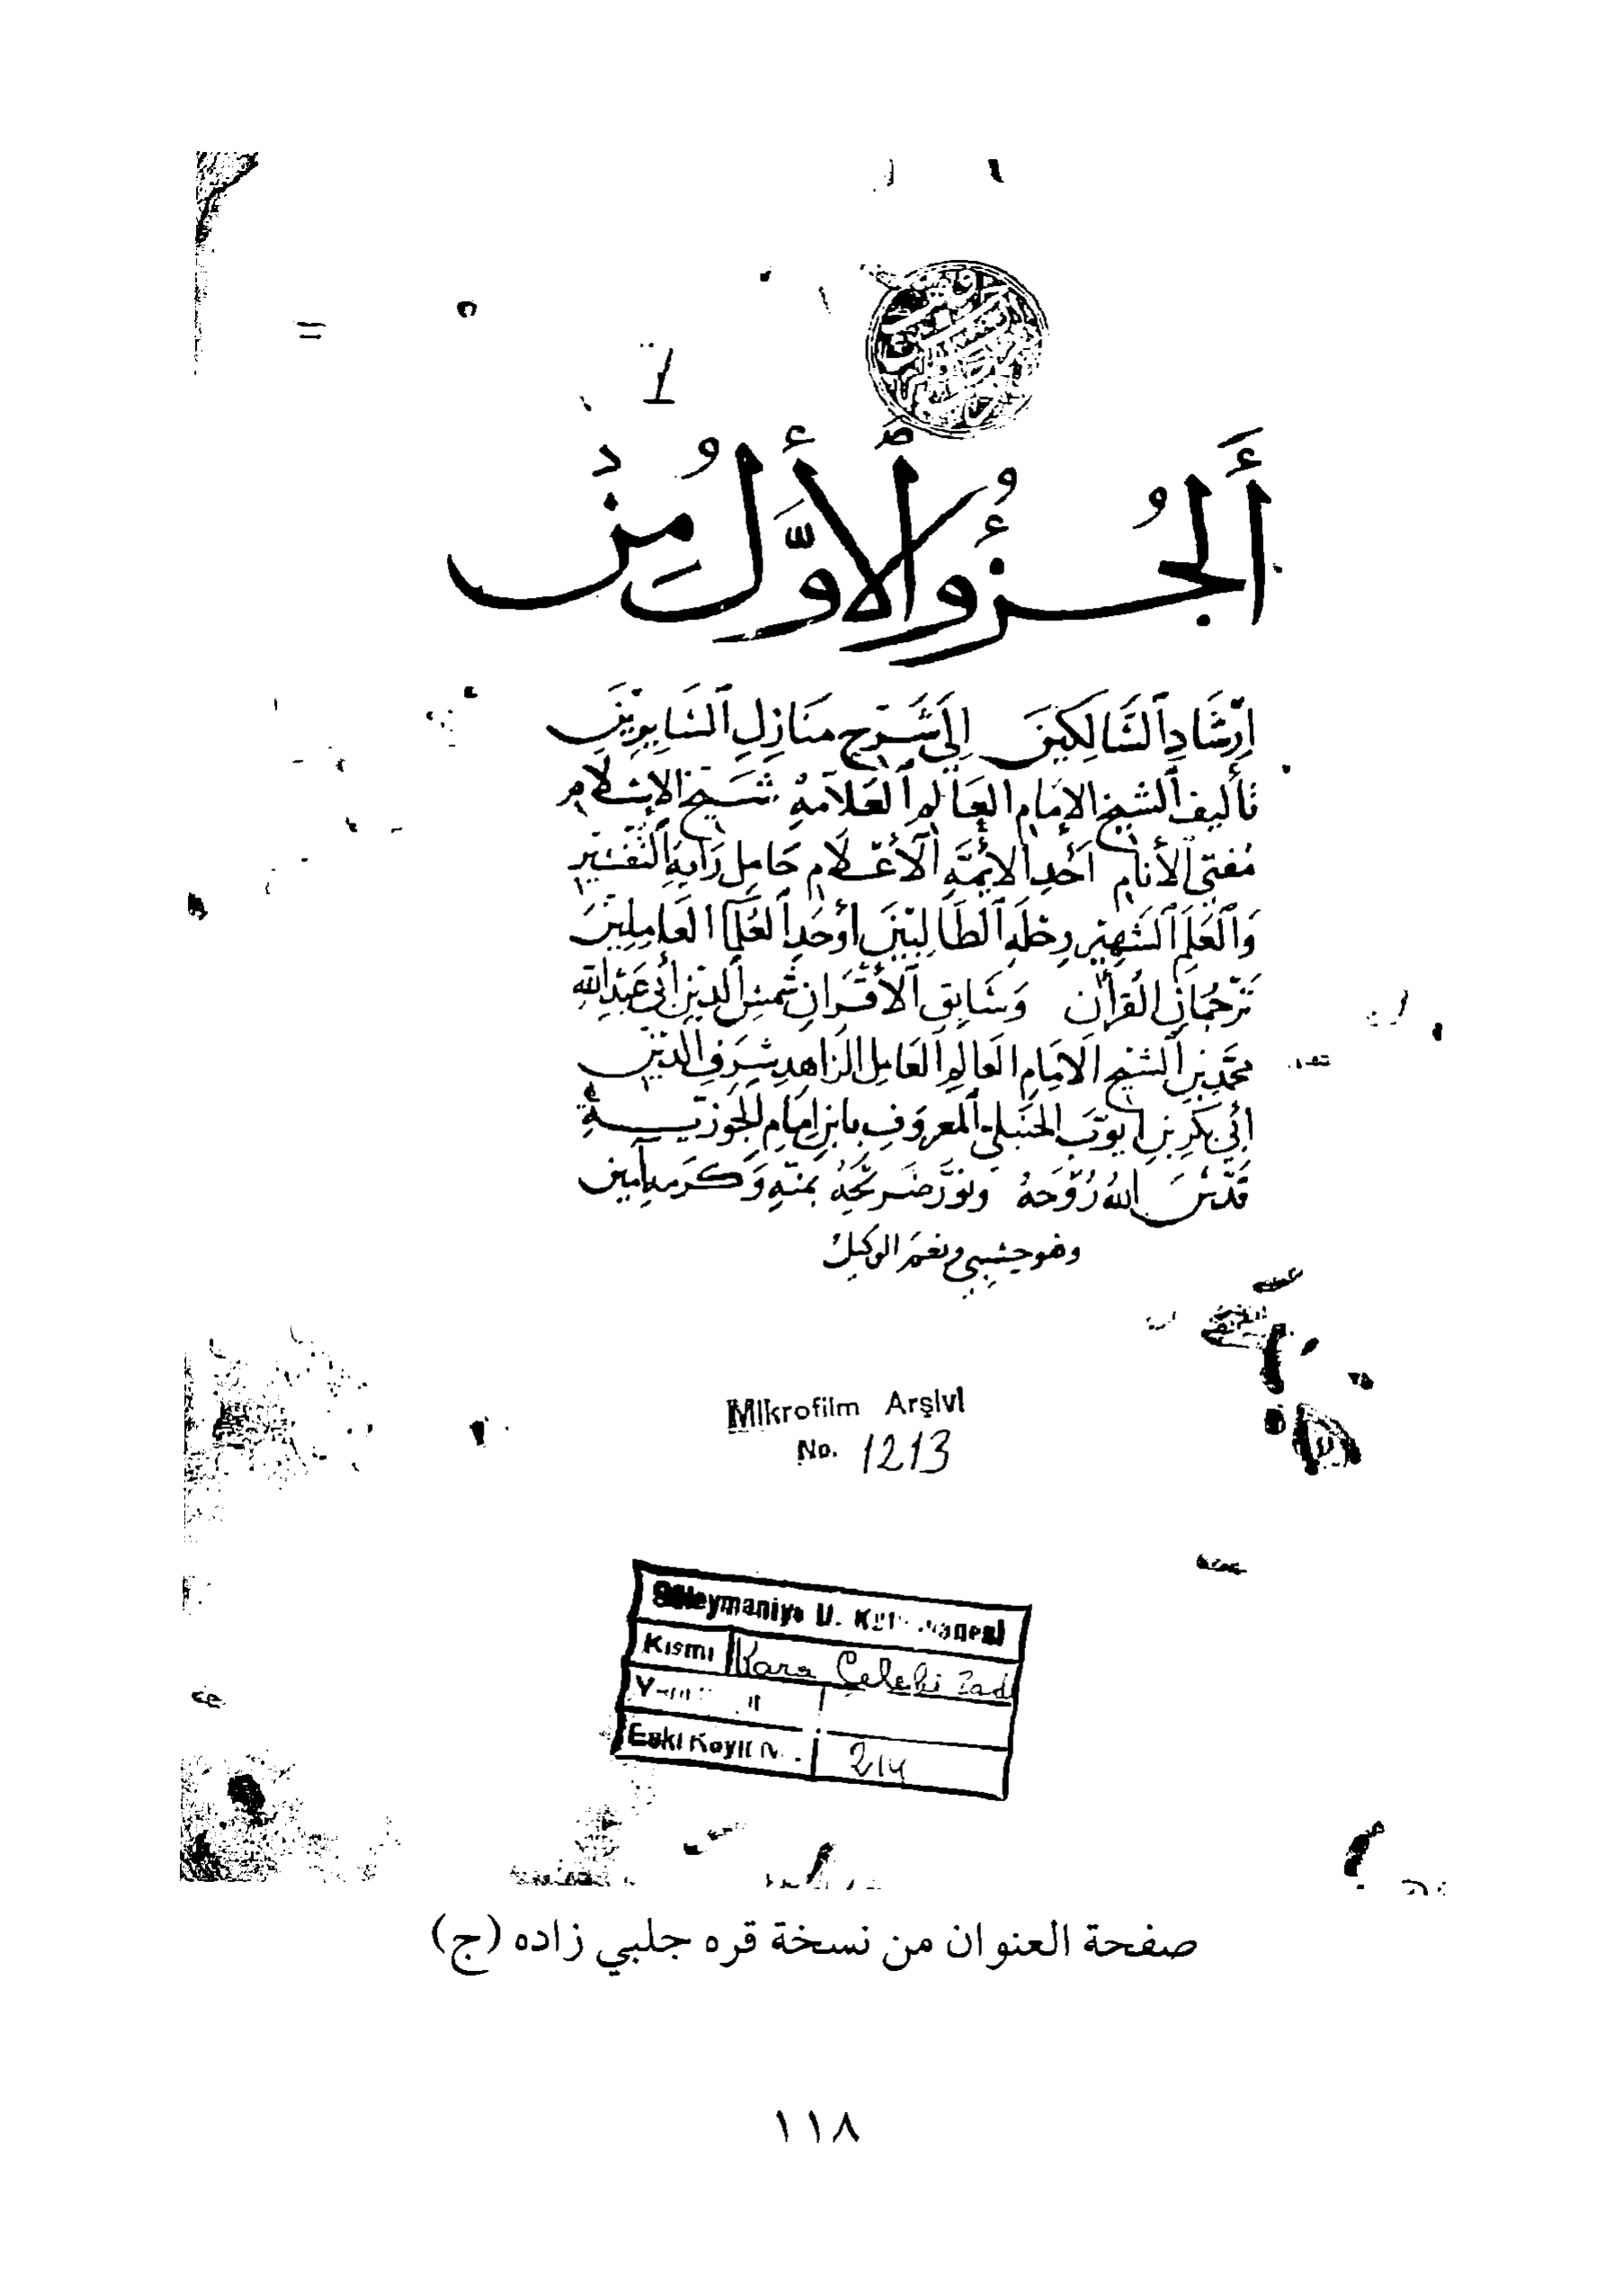 1
أَلجُزؤُ الأَوَّلُ مِنْ
إِرْشَادِ السَّالِكِينَ إِلَى شَرْحِ مَنَازِلِ السَّايِرِيْنَ
تأليف الشيخ الإمام العالم العلامة شيخ الإسلام
مفتي الأنام أحد الأئمة الأعلام حامل راية التفسير
والعلم الشهير رحلة الطالبين أوحد العلما العاملين
ترجمان القرآن وسابق الأقران شمس الدين أبي عبد الله
محمد بن الشيخ الإمام العالم العامل الزاهد شرف الدين
أبي بكر بن أيوب الحنبلي المعروف بابن إمام الجوزية
قدس الله روحه ونور ضريحه بمنه وكرمه آمين
وهو حسبي ونعم الوكيل
Mikrofilm Arşivi
No. 1213
Süleymaniye U. Kütüphanesi
Kısmı Kara Çelebi Zade
Eski Kayıt No. 214
صفحة العنوان من نسخة قره جلبي زاده (ج)
١١٨